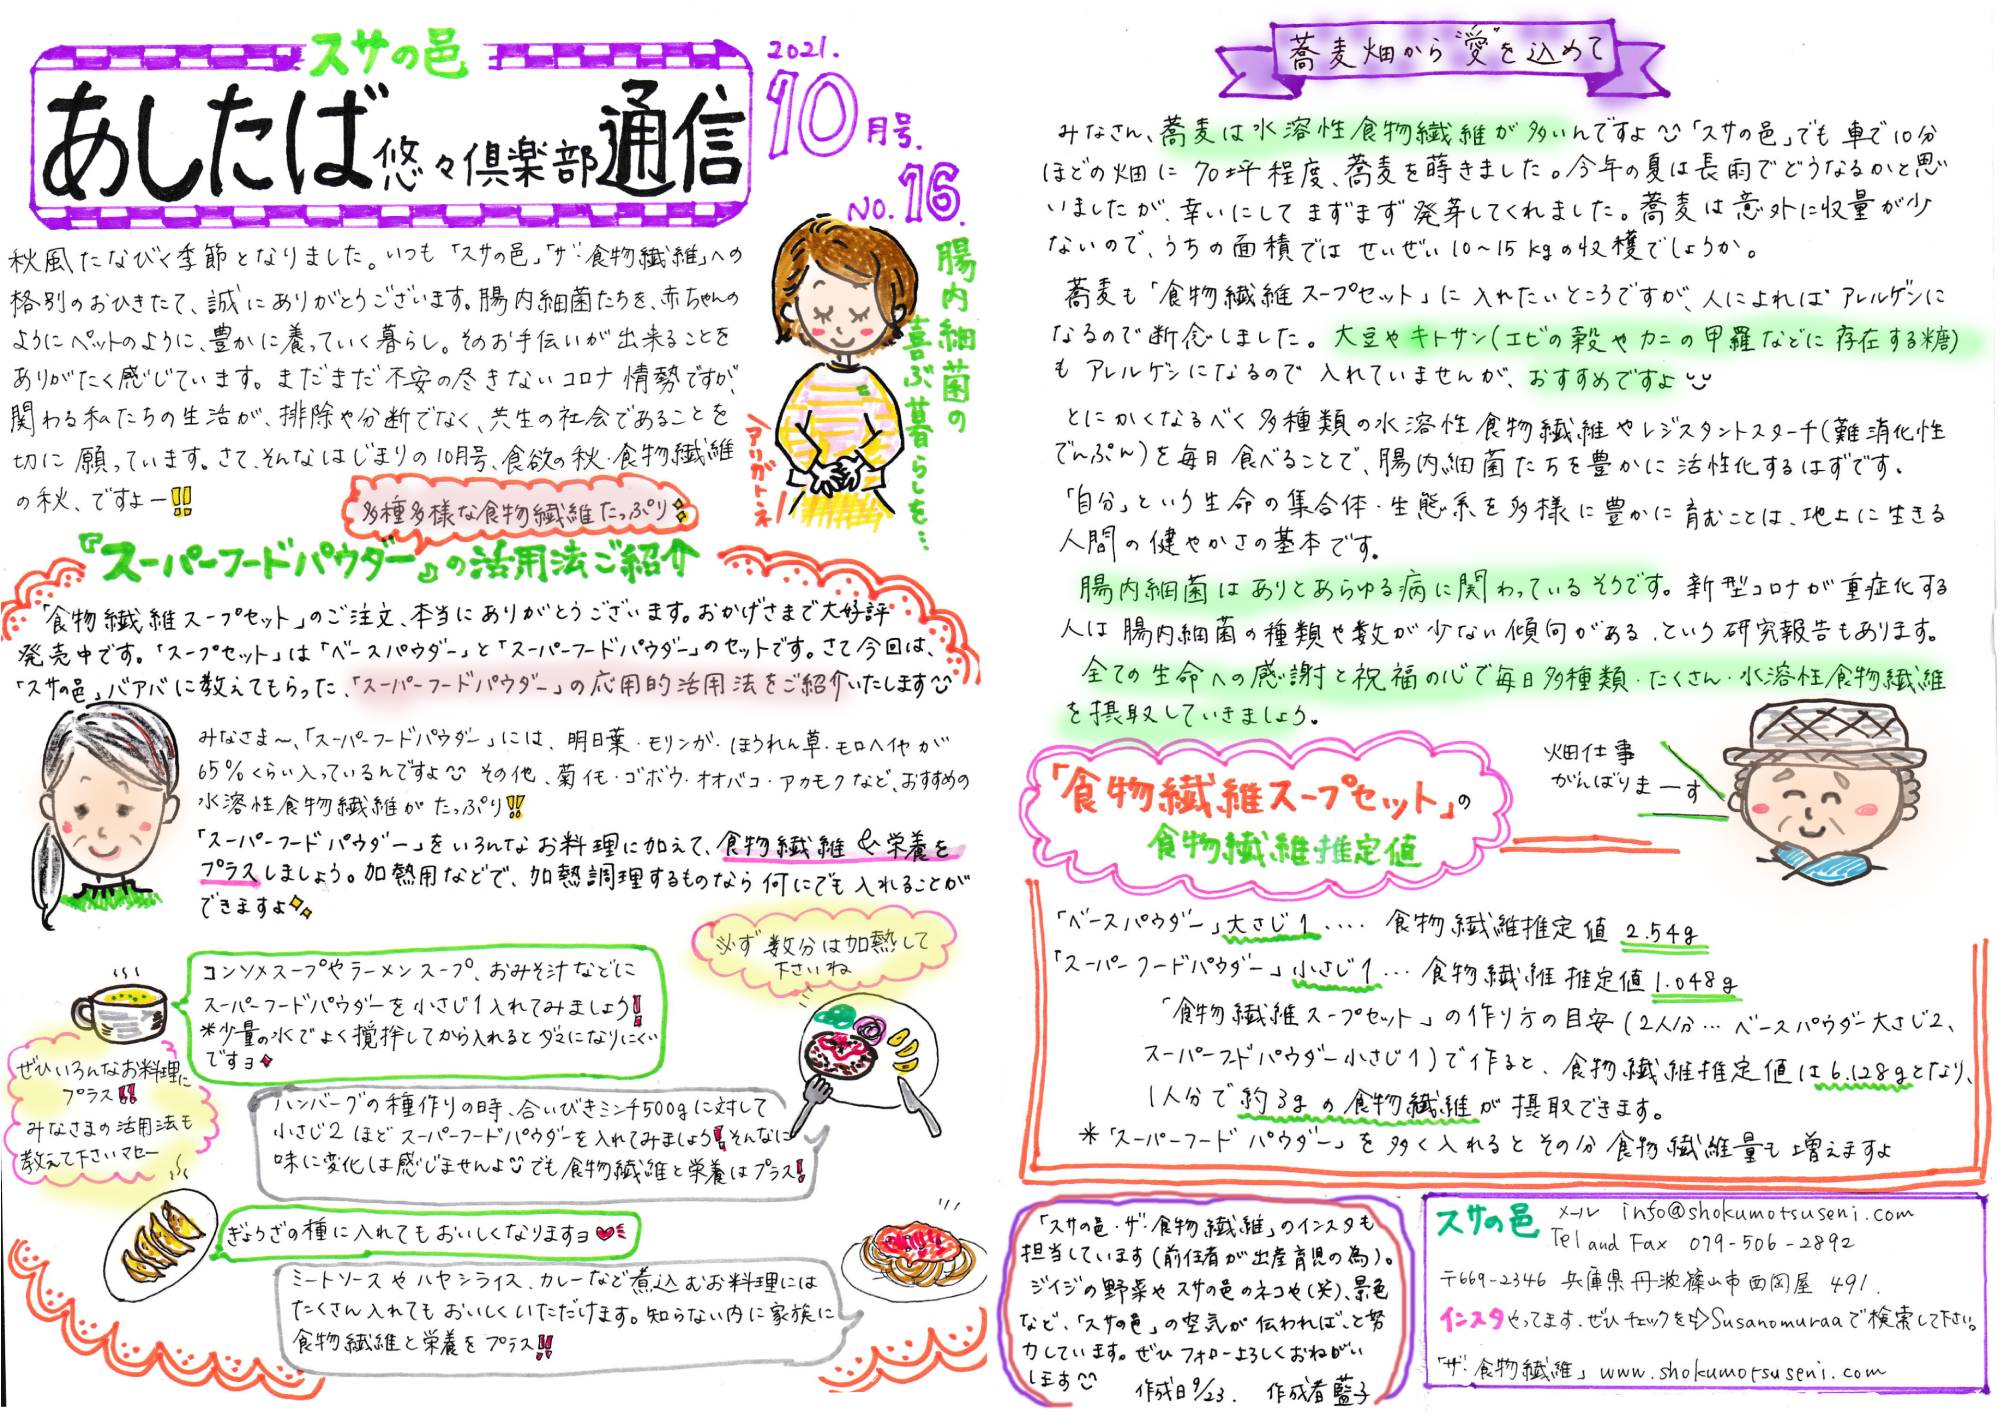 スサの邑
あしたば悠々倶楽部通信
2021.
10月号.
NO.16.
腸内細菌の
喜ぶ暮らしを…
アリガトネ
秋風たなびく季節となりました。いつも「スサの邑」「ザ・食物繊維」への
格別のおひきたて、誠にありがとうございます。腸内細菌たちを、赤ちゃんの
ようにペットのように、豊かに養っていく暮らし。そのお手伝いが出来ることを
ありがたく感じています。まだまだ不安の尽きないコロナ情勢ですが、
関わる私たちの生活が、排除や分断でなく、共生の社会であることを
切に願っています。さて、そんなはじまりの10月号、食欲の秋・食物繊維
の秋、ですよー!!
多種多様な食物繊維たっぷり
『スーパーフードパウダー』の活用法ご紹介
「食物繊維スープセット」のご注文、本当にありがとうございます。おかげさまで大好評
発売中です。「スープセット」は「ベースパウダー」と「スーパーフードパウダー」のセットです。さて今回は、
「スサの邑」バアバに教えてもらった、「スーパーフードパウダー」の応用的活用法をご紹介いたします
みなさま〜、「スーパーフードパウダー」には、明日葉・モリンガ・ほうれん草・モロヘイヤが
65%くらい入っているんですよ その他、菊イモ・ゴボウ・オオバコ・アカモクなど、おすすめの
水溶性食物繊維がたっぷり!!
「スーパーフードパウダー」をいろんなお料理に加えて、食物繊維&栄養を
プラスしましょう。加熱用などで、加熱調理するものなら何にでも入れることが
できますよ
必ず数分は加熱して
下さいね
コンソメスープやラーメンスープ、おみそ汁などに
スーパーフードパウダーを小さじ1入れてみましょう!
*少量の水でよく撹拌してから入れるとダマになりにくい
ですヨ
ぜひいろんなお料理に
プラス!!
みなさまの活用法も
教えて下さいマセー
ハンバーグの種作りの時、合いびきミンチ500gに対して
小さじ2ほどスーパーフードパウダーを入れてみましょう!そんなに
味に変化は感じませんよ でも食物繊維と栄養はプラス!
ぎょうざの種に入れてもおいしくなりますヨ
ミートソースやハヤシライス、カレーなど煮込むお料理には
たくさん入れてもおいしくいただけます。知らない内に家族に
食物繊維と栄養をプラス!!
蕎麦畑から"愛"を込めて
みなさん、蕎麦は水溶性食物繊維が多いんですよ 「スサの邑」でも車で10分
ほどの畑に70坪程度、蕎麦を蒔きました。今年の夏は長雨でどうなるかと思
いましたが、幸いにしてまずまず発芽してくれました。蕎麦は意外に収量が少
ないので、うちの面積ではせいぜい10〜15kgの収穫でしょうか。
蕎麦も「食物繊維スープセット」に入れたいところですが、人によればアレルゲンに
なるので断念しました。大豆やキトサン(エビの殻やカニの甲羅などに存在する糖)
もアレルゲンになるので入れていませんが、おすすめですよ
とにかくなるべく多種類の水溶性食物繊維やレジスタントスターチ(難消化性
でんぷん)を毎日食べることで、腸内細菌たちを豊かに活性化するはずです。
「自分」という生命の集合体・生態系を多様に豊かに育むことは、地上に生きる
人間の健やかさの基本です。
腸内細菌はありとあらゆる病に関わっているそうです。新型コロナが重症化する
人は腸内細菌の種類や数が少ない傾向がある、という研究報告もあります。
全ての生命への感謝と祝福の心で毎日多種類・たくさん・水溶性食物繊維
を摂取していきましょう。
畑仕事
がんばりまーす
「食物繊維スープセット」の
食物繊維推定値
「ベースパウダー」大さじ1‥‥ 食物繊維推定値 2.54g
「スーパーフードパウダー」小さじ1… 食物繊維推定値1.048g
「食物繊維スープセット」の作り方の目安(2人分…ベースパウダー大さじ2、
スーパーフードパウダー小さじ1)で作ると、食物繊維推定値は6.128gとなり、
1人分で約3gの食物繊維が摂取できます。
*「スーパーフードパウダー」を多く入れるとその分食物繊維量も増えますよ
「スサの邑・ザ・食物繊維」のインスタも
担当しています(前任者が出産育児の為)。
ジイジの野菜やスサの邑のネコや(笑)、景色
など、「スサの邑」の空気が伝われば、と努
力しています。ぜひフォローよろしくおねがい
します
作成日9/23. 作成者 藍子
スサの邑 メール info@shokumotsuseni.com
Tel and Fax 079-506-2892
〒669-2346 兵庫県丹波篠山市西岡屋 491.
インスタやってます、ぜひチェックを⇨Susanomuraaで検索して下さい。
「ザ・食物繊維」www.shokumotsuseni.com